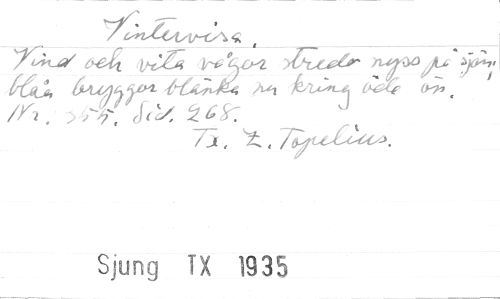 Vintervisa.
Vind och vita vågor streda nyss på sjön,
blåa bryggor blänka nu kring öde ön.
Nr. 355. Sid. 268.
Tx. Z. Topelius.
Sjung TX 1935